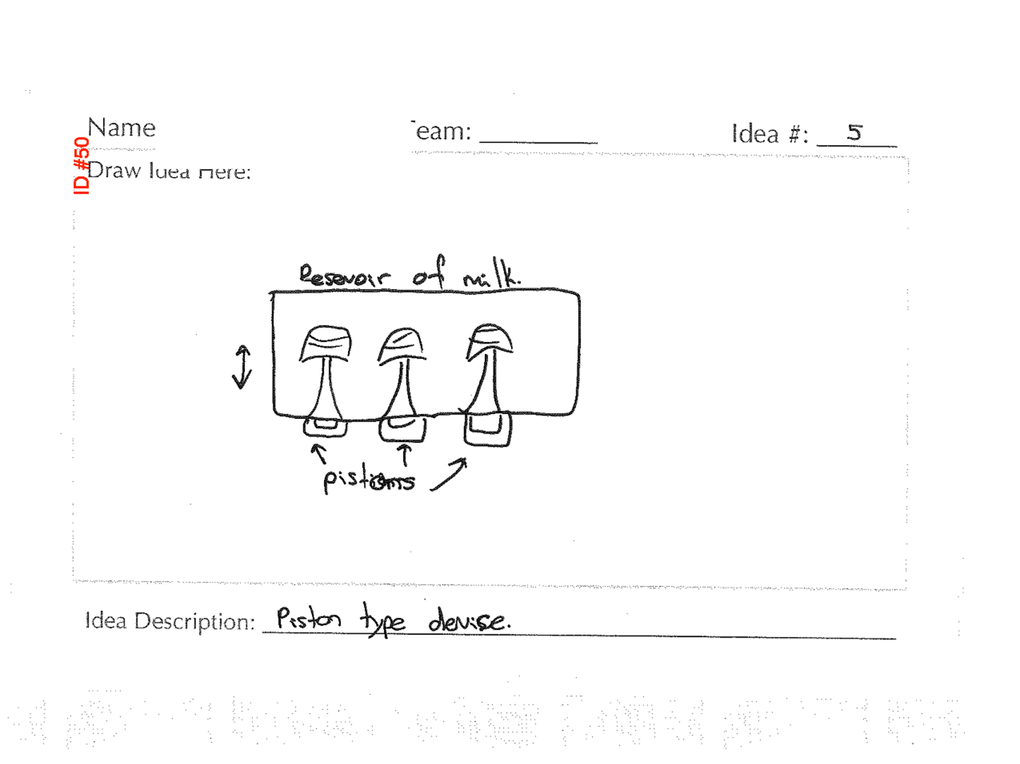 Name eam: Idea #: 5
ID #50
Draw Idea Here:
Resevoir of milk.
pistons
Idea Description: Piston type devise.